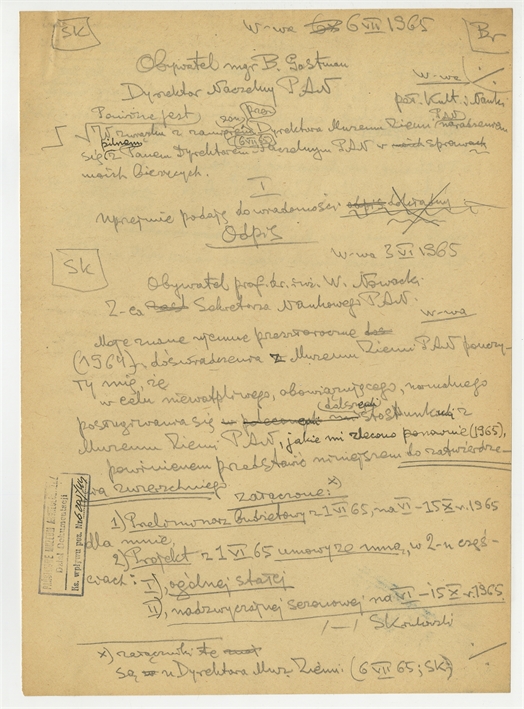 SK
W-wa 6 VII 1965
Br
Obywatel mgr B. Gostman
Dyrektor Naczelny PAN
W-wa
pał. Kult. i Nauki
Poniższe jest
W związku z zamierzen. Dyrektora Muzeum Ziemi PAN
pilnem 6 VII 65
się z Panem Dyrektorem Naczelnym PAN w sprawach
moich bieżących.
I
Uprzejmie podaję do wiadomości odpis dosłowny
Odpis
SK
W-wa 3 VI 1965
Obywatel prof. dr. inż. W. Nowacki
Z-ca Sekretarza Naukowego PAN.
W-wa
Moje znane ujemne przeszłoroczne
(1964), doświadczenia z Muzeum Ziemi PAN pouczy-
ły mię, że
w celu niewątpliwego, obowiązującego,
posługiwania się dalszych stosunkach z
Muzeum Ziemi PAN, jakie mi zlecono ponownie (1965),
powinienem przedstawić niniejszem do zatwierdze-
nia zwierzchniego
załączone: x)
1) Preliminarz budżetowy z 1 VI 65, na VI – 15 X r. 1965
dla mnie,
2) Projekt z 1 VI 65 umowy ze mną, w 2-u częś-
ciach: I), ogólnej stałej
II), nadzwyczajnej sezonowej na VI – 15 X r. 1965.
/-/ SKozłowski
x) załączniki te
są u Dyrektora Muz. Ziemi (6 VII 65; SK)
Dział Dokumentacji
Ks. wpływu poz. No